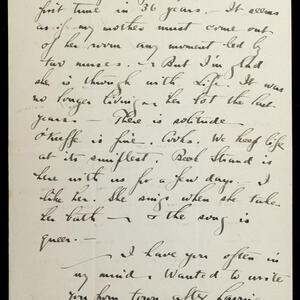 first time in 36 years. — It seems
as if my mother must come out
of her room any moment led by
two nurses. — But I'm glad
she is through with Life. It was
no longer living for her the last
years. — There is solitude —
O'Keeffe is fine. Cooks. We keep life
at its simplest. Beck Strand is
here with us for a few days. I
like her. She sings when she takes
her bath — & the song is
queer. —
— I have you often in
my mind. Wanted to write
you from town after having